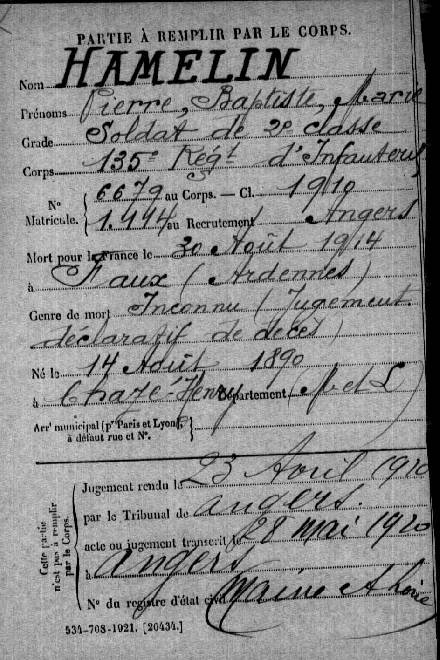 PARTIE À REMPLIR PAR LE CORPS.
Nom HAMELIN
Prénoms Pierre, Baptiste, Marie
Grade Soldat de 2e classe
Corps 135e Régt d'Infanterie
N° Matricule. { 6679 au Corps. — Cl. 1910
1.444 au Recrutement Angers
Mort pour la France le 30 Août 1914
à Faux (Ardennes)
Genre de mort Inconnu (Jugement
déclaratif de décès)
Né le 14 Août 1890
à Chazé-Henry Département (M et L)
Arrt municipal (pr Paris et Lyon), à défaut rue et N°. {
Cette partie n'est pas à remplir par le Corps.
Jugement rendu le 23 Avril 1920
par le Tribunal de Angers.
acte ou jugement transcrit le 28 mai 1920
à Angers
N° du registre d'état civil Maine & Loire
534-708-1921. [20434.]